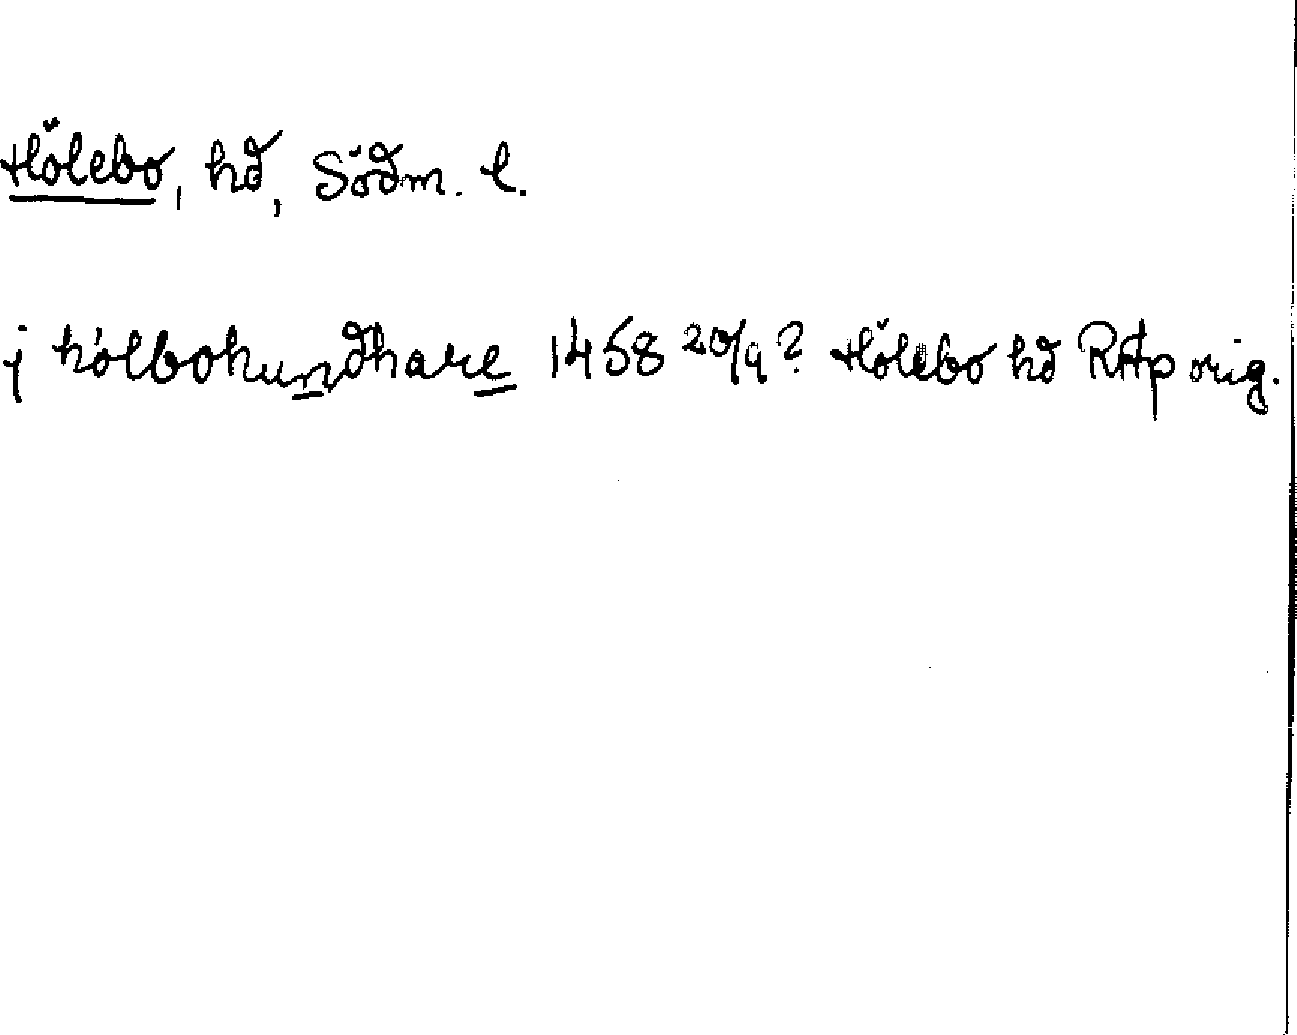 Hölebo, hd, Södm. l.
j hólbohundhare 1458 20/9? Hölebo hd RAp orig.